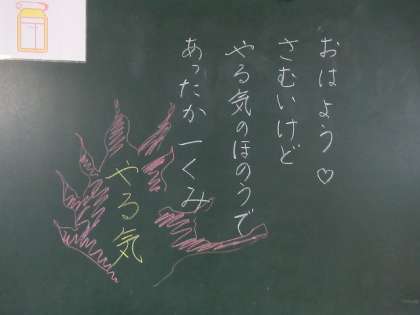 おはよう♡
さむいけど
やる気のほのうで
あったか一くみ
やる気